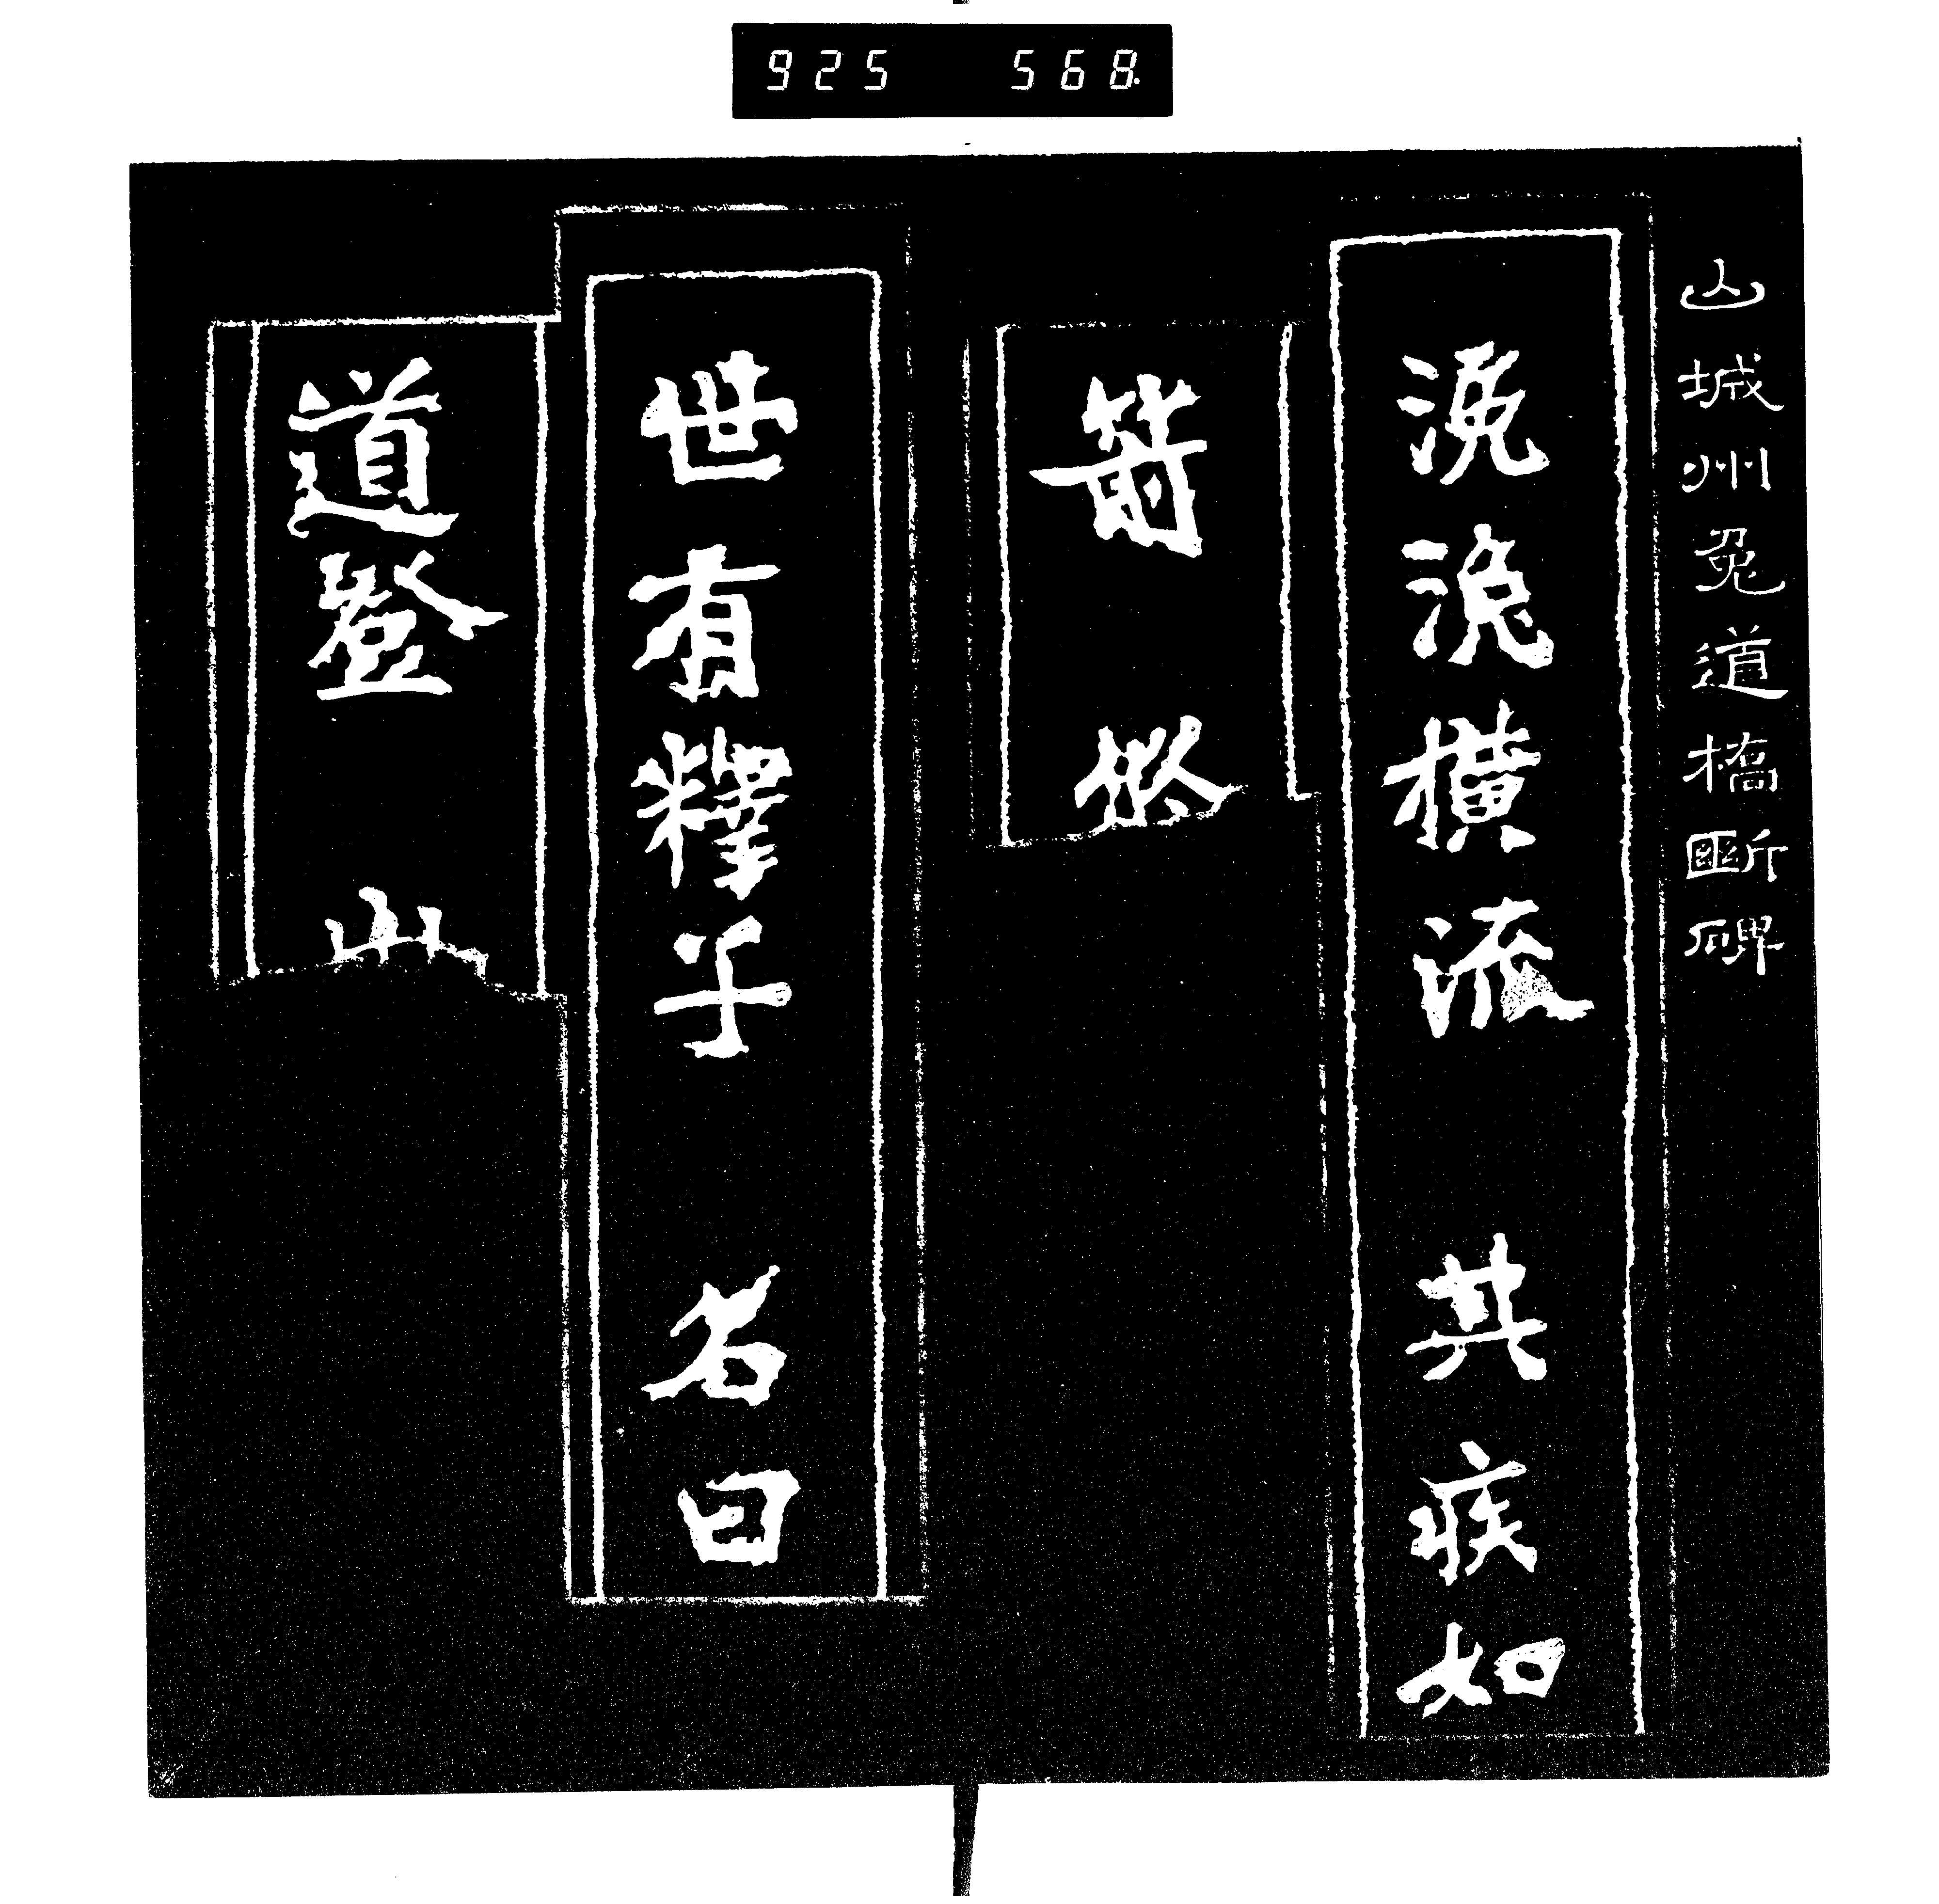 925 568.
山城州兎道橋斷碑
浼浼横流 其疾如
箭 修
世有釋子 名曰
道登